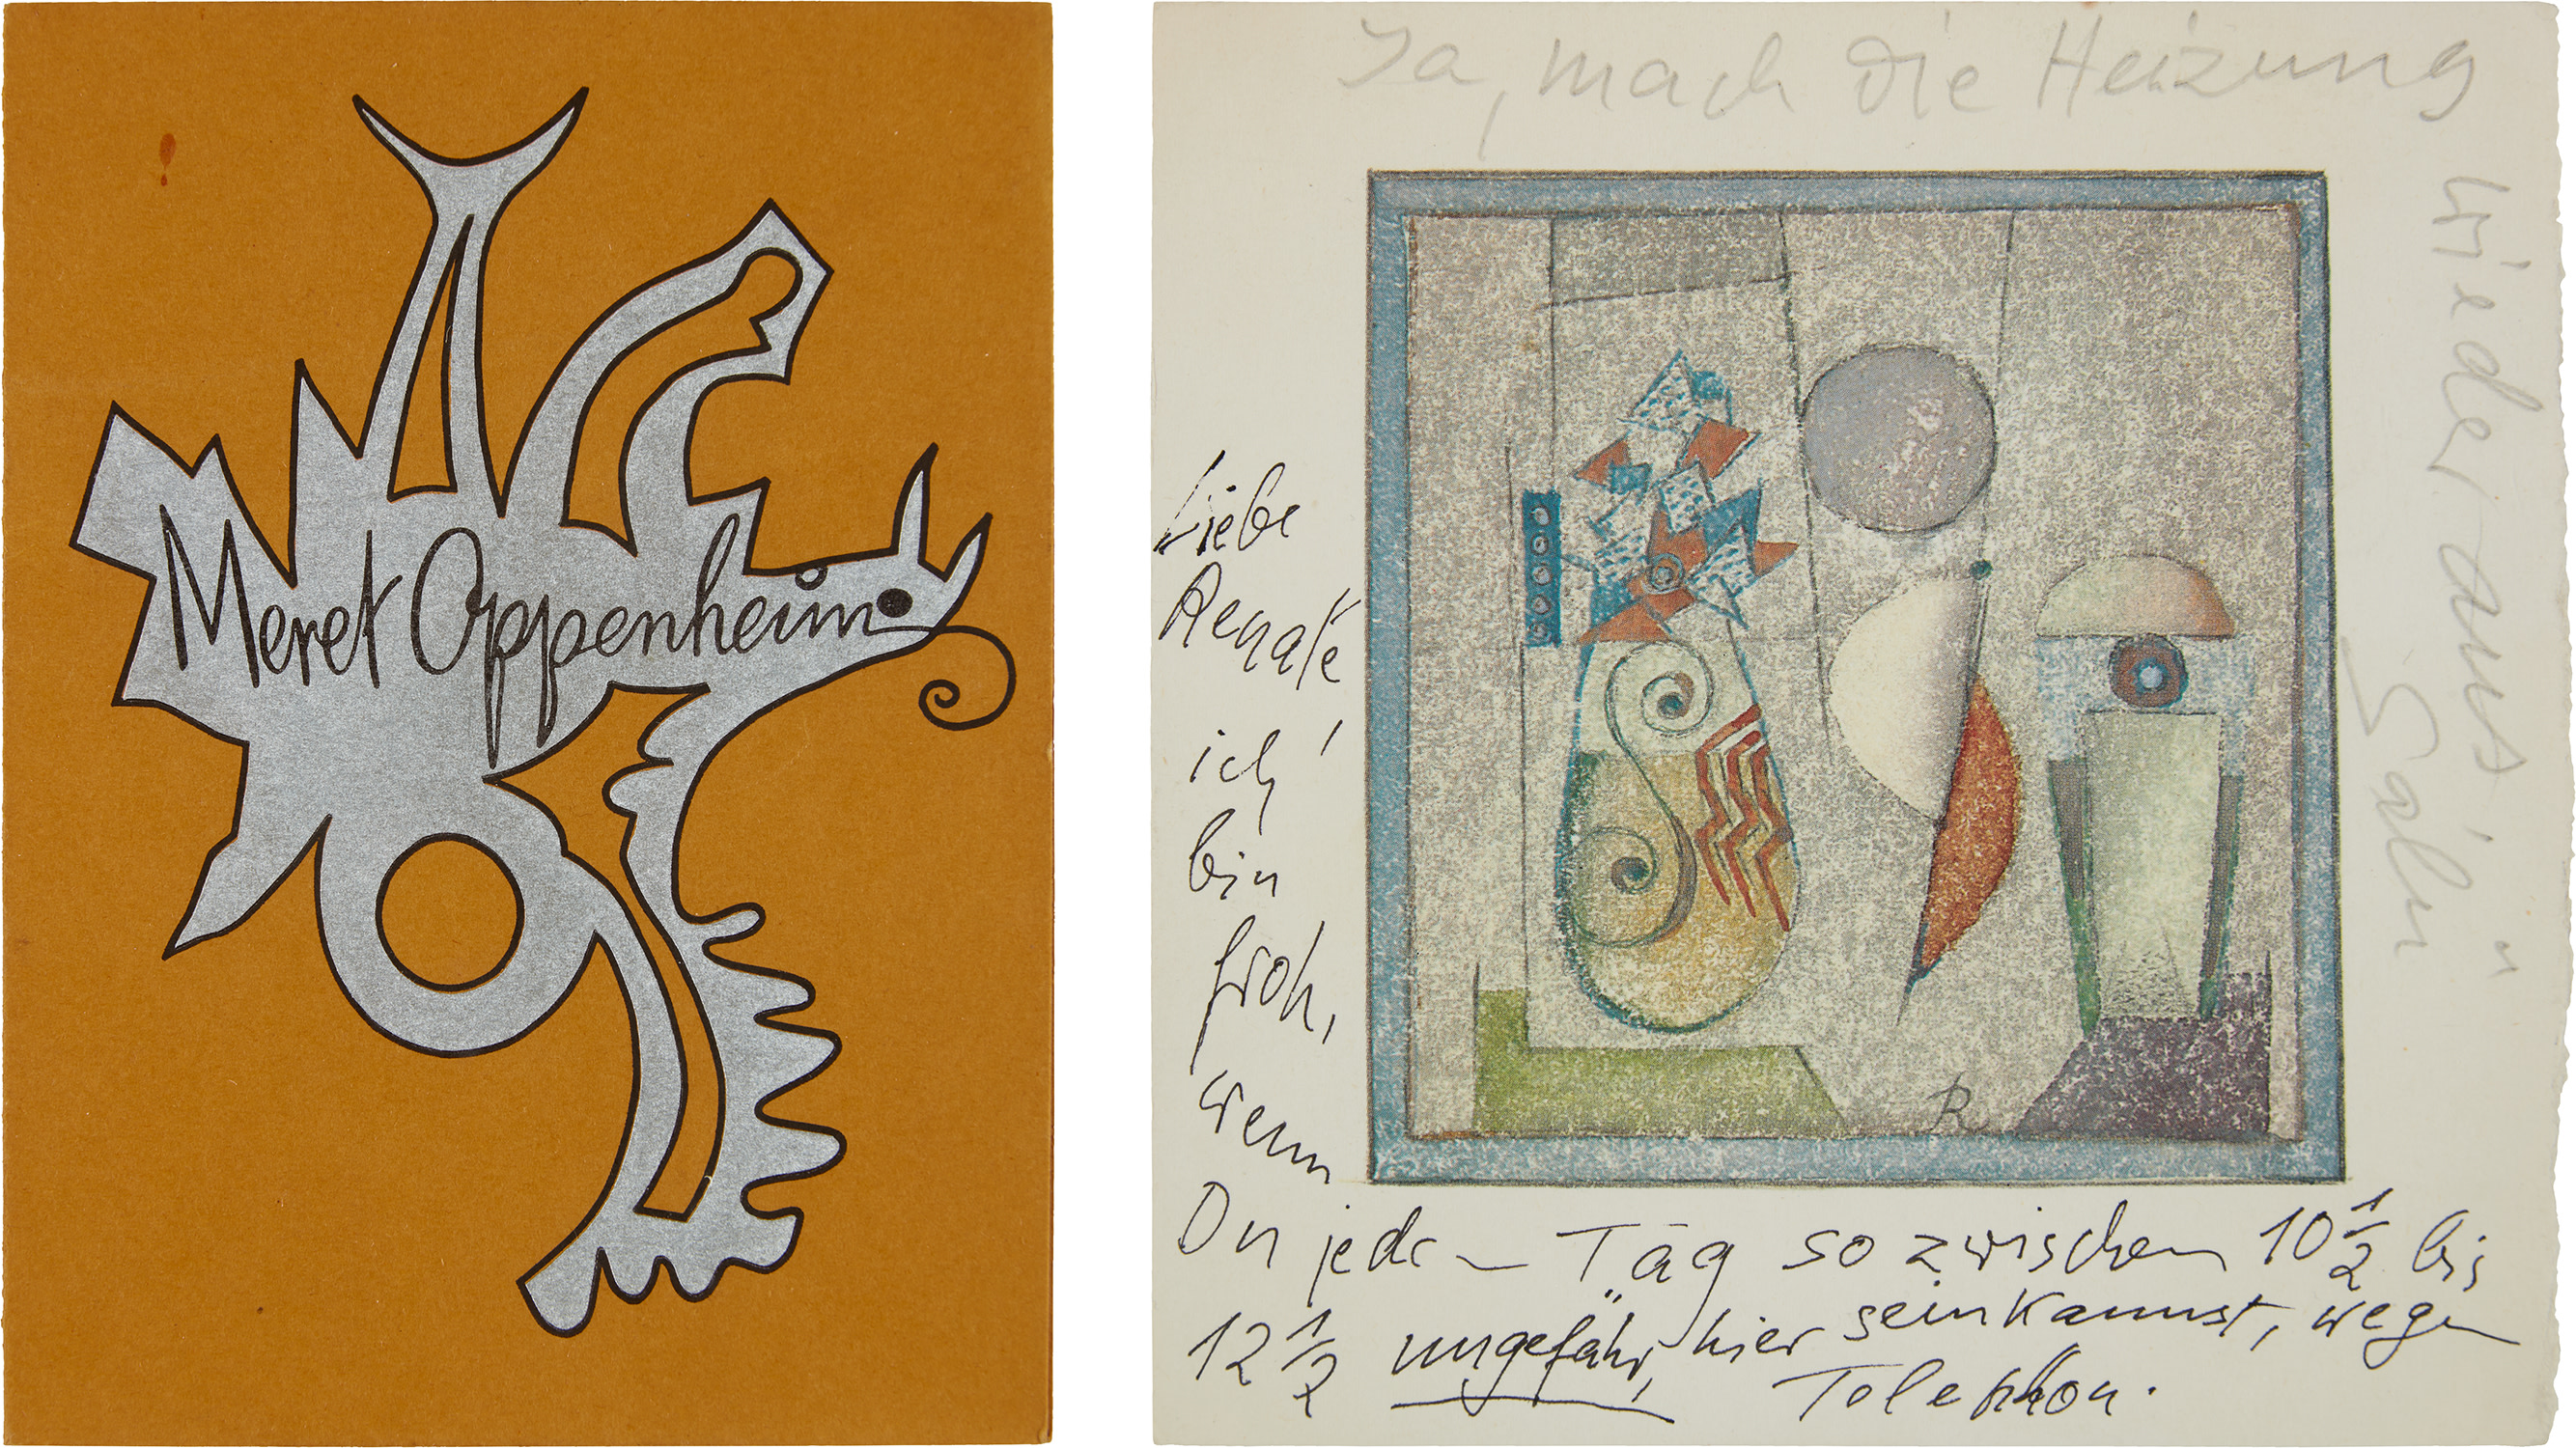 Meret Oppenheim
Ja, mach die Heizung
wieder aus!
Liebe
Renate,
ich
bin
froh,
wenn
Du jeden Tag so zwischen 10 1/2 bis
12 1/2 ungefähr, hier sein kannst, wegen
Telephon.
R